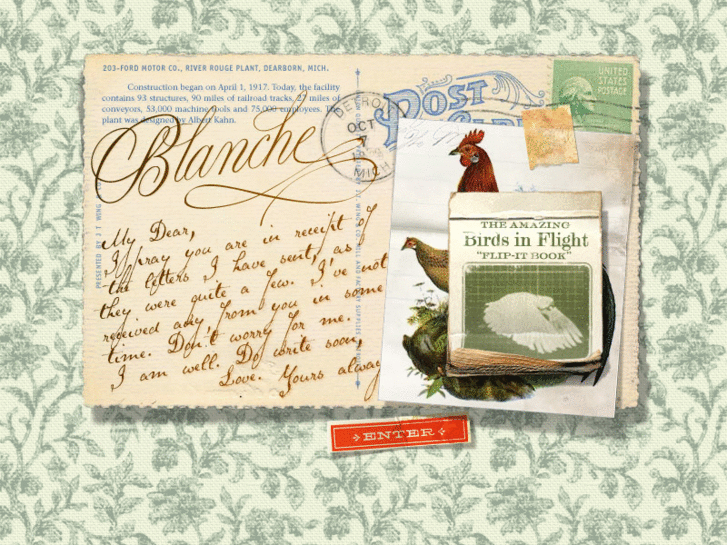 203-FORD MOTOR CO., RIVER ROUGE PLANT, DEARBORN, MICH.
Construction began on April 1, 1917. Today, the facility
contains 93 structures, 90 miles of railroad tracks, 27 miles of
conveyors, 53,000 machine tools and 75,000 employees. The
plant was designed by Albert Kahn.
Blanche
My Dear,
I pray you are in receipt of
the letters I have sent, as
they were quite a few. I've not
received any from you in some
time. Don't worry for me.
I am well. Do write soon,
Love. Yours alway
PRESENTED BY J T WING
DETROIT
OCT
7
MICH
POST
UNITED
STATES
POSTAGE
THE AMAZING
Birds in Flight
"FLIP-IT BOOK"
ENTER